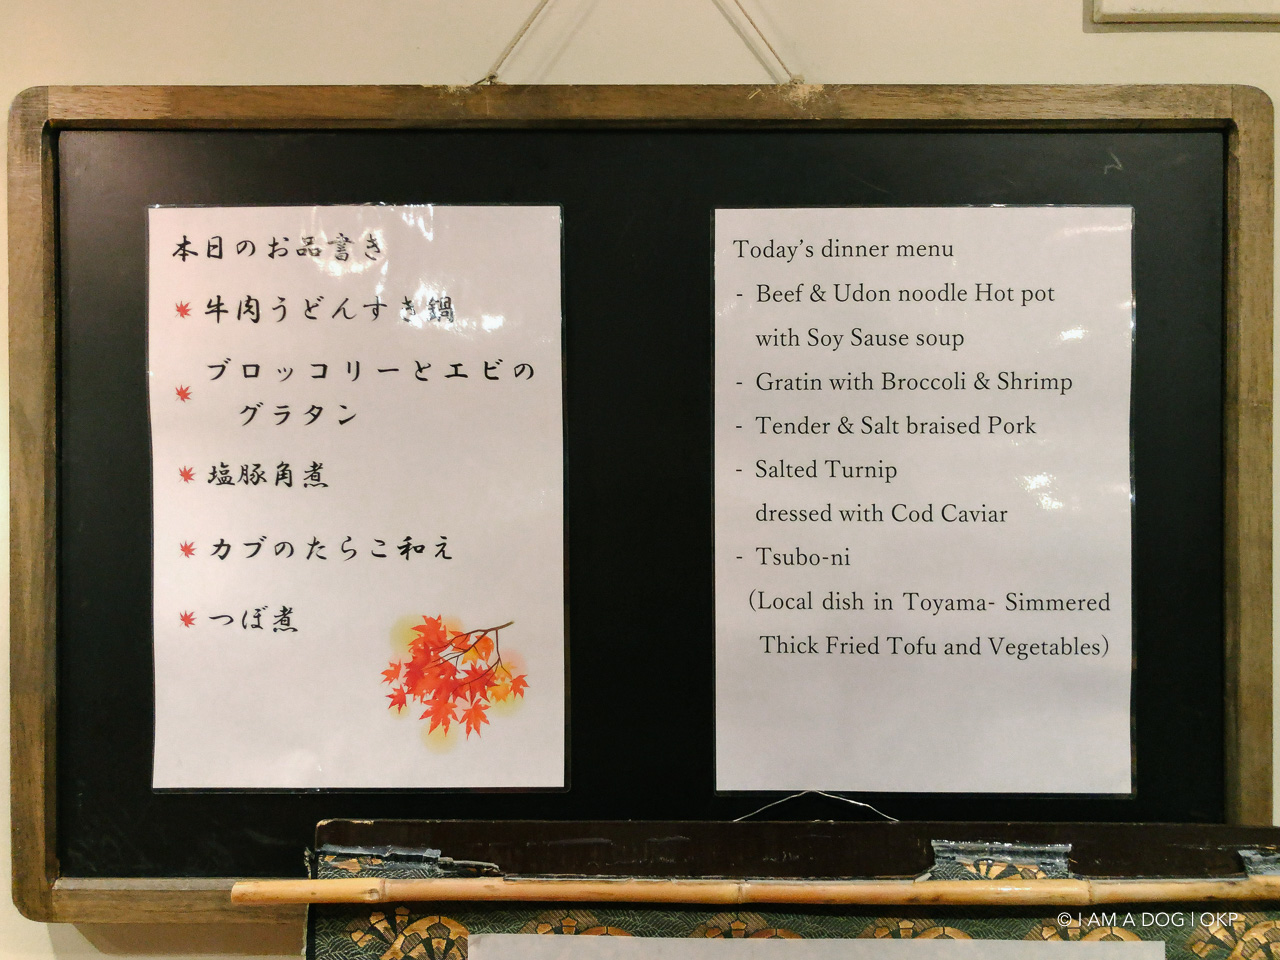 本日のお品書き
牛肉うどんすき鍋
ブロッコリーとエビの
グラタン
塩豚角煮
カブのたらこ和え
つぼ煮
Today's dinner menu
- Beef & Udon noodle Hot pot
with Soy Sause soup
- Gratin with Broccoli & Shrimp
- Tender & Salt braised Pork
- Salted Turnip
dressed with Cod Caviar
- Tsubo-ni
(Local dish in Toyama- Simmered
Thick Fried Tofu and Vegetables)
© I AM A DOG | OKP